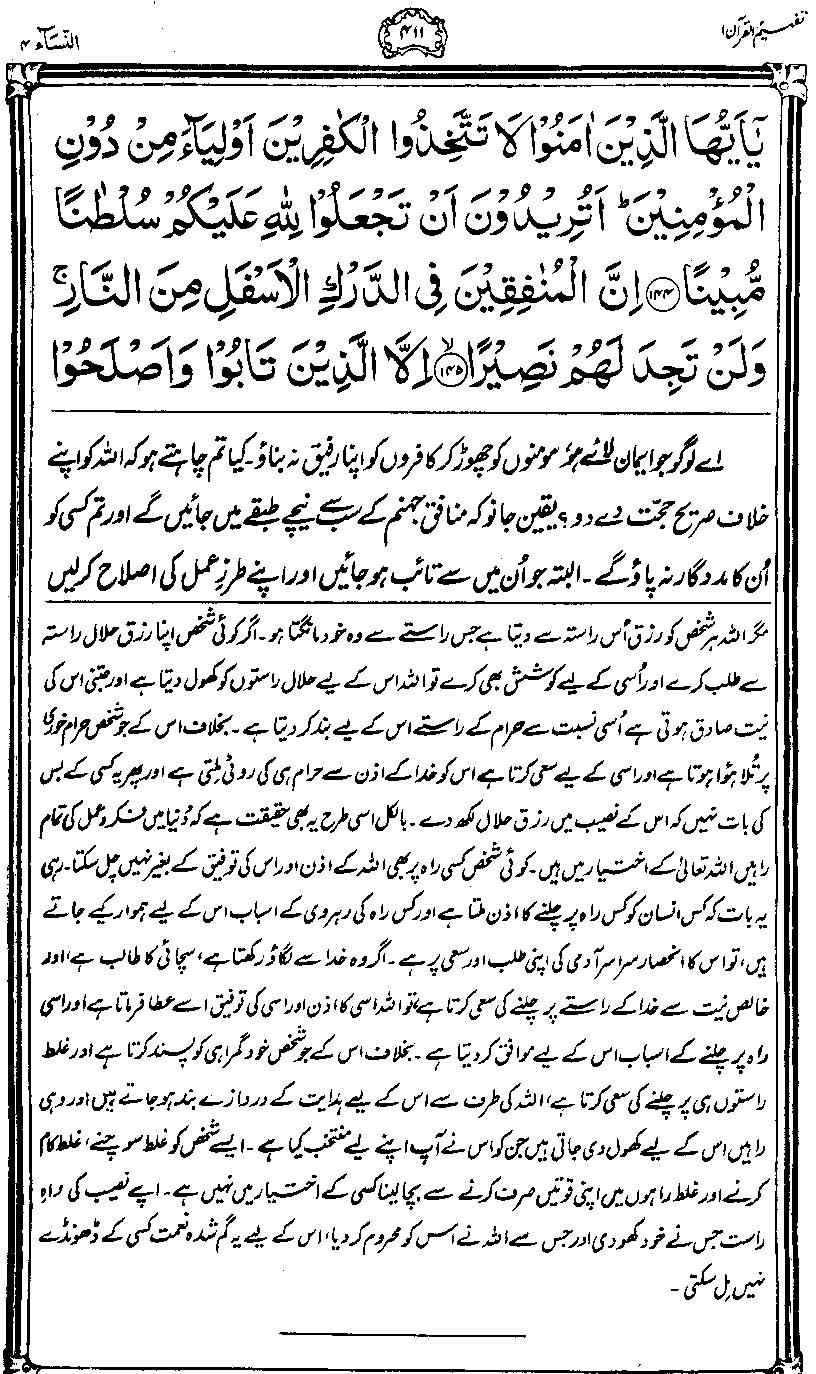 تفہیم القرآن ۱
۴۱۱
النساء ۴
يٰۤاَيُّهَا الَّذِيْنَ اٰمَنُوْا لَا تَتَّخِذُوا الْكٰفِرِيْنَ اَوْلِيَآءَ مِنْ دُوْنِ
الْمُؤْمِنِيْنَ ؕ اَتُرِيْدُوْنَ اَنْ تَجْعَلُوْا لِلّٰهِ عَلَيْكُمْ سُلْطٰنًا
مُّبِيْنًا ﴿۱۴۴﴾ اِنَّ الْمُنٰفِقِيْنَ فِى الدَّرْكِ الْاَسْفَلِ مِنَ النَّارِ ۚ
وَلَنْ تَجِدَ لَهُمْ نَصِيْرًا ﴿۱۴۵﴾ۙ اِلَّا الَّذِيْنَ تَابُوْا وَاَصْلَحُوْا
اے لوگو جو ایمان لائے ہو، مومنوں کو چھوڑ کر کافروں کو اپنا رفیق نہ بناؤ۔ کیا تم چاہتے ہو کہ اللہ کو اپنے
خلاف صریح حجت دے دو؟ یقین جانو کہ منافق جہنم کے سب سے نیچے طبقے میں جائیں گے اور تم کسی کو
اُن کا مددگار نہ پاؤ گے۔ البتہ جو اُن میں سے تائب ہو جائیں اور اپنے طرزِ عمل کی اصلاح کر لیں
مگر اللہ ہر شخص کو رزق اُس راستہ سے دیتا ہے جس راستے سے وہ خود مانگتا ہو۔ اگر کوئی شخص اپنا رزق حلال راستہ
سے طلب کرے اور اُسی کے لیے کوشش بھی کرے تو اللہ اس کے لیے حلال راستوں کو کھول دیتا ہے اور جتنی اس کی
نیت صادق ہوتی ہے اُسی نسبت سے حرام کے راستے اس کے لیے بند کر دیتا ہے۔ بخلاف اس کے جو شخص حرام خوری
پر تُلا ہُوا ہوتا ہے اور اسی کے لیے سعی کرتا ہے اس کو خدا کے اذن سے حرام ہی کی روٹی ملتی ہے اور پھر یہ کسی کے بس
کی بات نہیں کہ اس کے نصیب میں رزق حلال لکھ دے۔ بالکل اسی طرح یہ بھی حقیقت ہے کہ دُنیا میں فکر و عمل کی تمام
راہیں اللہ تعالیٰ کے اختیار میں ہیں۔ کوئی شخص کسی راہ پر بھی اللہ کے اذن اور اس کی توفیق کے بغیر نہیں چل سکتا۔ رہی
یہ بات کہ کس انسان کو کس راہ پر چلنے کا اذن ملتا ہے اور کس راہ کی رہروی کے اسباب اس کے لیے ہموار کیے جاتے
ہیں، تو اس کا انحصار سراسر آدمی کی اپنی طلب اور سعی پر ہے۔ اگر وہ خدا سے لگاؤ رکھتا ہے، سچائی کا طالب ہے، اور
خالص نیت سے خدا کے راستے پر چلنے کی سعی کرتا ہے، تو اللہ اسی کا اذن اور اسی کی توفیق اسے عطا فرماتا ہے اور اسی
راہ پر چلنے کے اسباب اس کے لیے موافق کر دیتا ہے۔ بخلاف اس کے جو شخص خود گمراہی کو پسند کرتا ہے اور غلط
راستوں ہی پر چلنے کی سعی کرتا ہے، اللہ کی طرف سے اس کے لیے ہدایت کے دروازے بند ہو جاتے ہیں اور وہی
راہیں اس کے لیے کھول دی جاتی ہیں جن کو اس نے آپ اپنے لیے منتخب کیا ہے۔ ایسے شخص کو غلط سوچنے، غلط کام
کرنے اور غلط راہوں میں اپنی قوتیں صرف کرنے سے بچا لینا کسی کے اختیار میں نہیں ہے۔ اپنے نصیب کی راہِ
راست جس نے خود کھو دی اور جس سے اللہ نے اس کو محروم کر دیا، اس کے لیے یہ گم شدہ نعمت کسی کے ڈھونڈے
نہیں مل سکتی۔